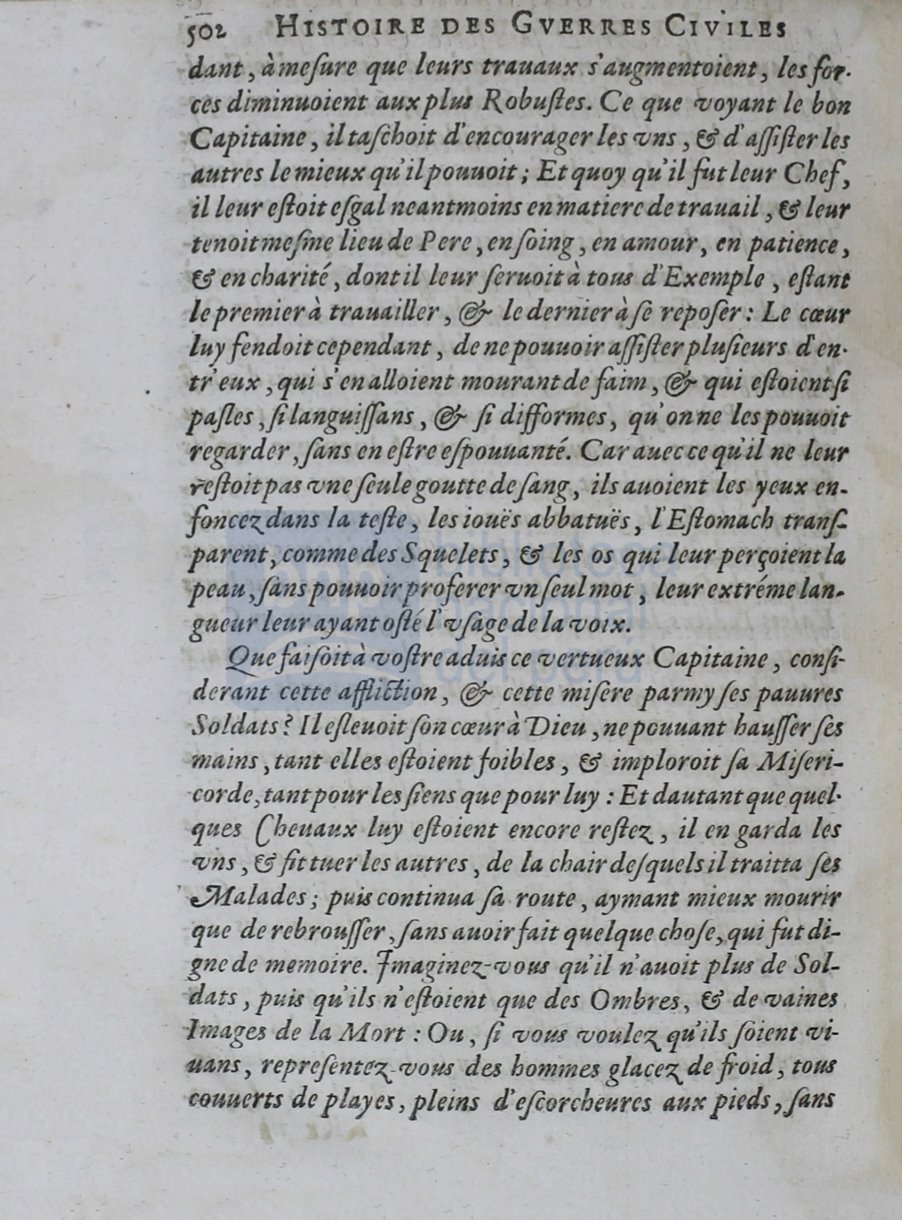 502 HISTOIRE DES GVERRES CIVILES
dant, à meſure que leurs trauaux s'augmentoient, les for-
ces diminuoient aux plus Robuſtes. Ce que voyant le bon
Capitaine, il taſchoit d'encourager les vns, & d'aſſiſter les
autres le mieux qu'il pouuoit; Et quoy qu'il fut leur Chef,
il leur eſtoit eſgal neantmoins en matiere de trauail, & leur
tenoit meſme lieu de Pere, en ſoing, en amour, en patience,
& en charité, dont il leur ſeruoit à tous d'Exemple, eſtant
le premier à trauailler, & le dernier à ſe repoſer: Le cœur
luy fendoit cependant, de ne pouuoir aſſiſter pluſieurs d'en-
tr'eux, qui s'en alloient mourant de faim, & qui eſtoient ſi
paſles, ſi languiſſans, & ſi difformes, qu'on ne les pouuoit
regarder, ſans en eſtre eſpouuanté. Car auec ce qu'il ne leur
reſtoit pas vne ſeule goutte de ſang, ils auoient les yeux en-
foncez dans la teſte, les iouës abbatuës, l'Eſtomach tranſ-
parent, comme des Squelets, & les os qui leur perçoient la
peau, ſans pouuoir proferer vn ſeul mot, leur extréme lan-
gueur leur ayant oſté l'vſage de la voix.
Que faiſoit à voſtre aduis ce vertueux Capitaine, conſi-
derant cette affliction, & cette miſere parmy ſes pauures
Soldats? Il eſleuoit ſon cœur à Dieu, ne pouuant hauſſer ſes
mains, tant elles eſtoient foibles, & imploroit ſa Miſeri-
corde, tant pour les ſiens que pour luy: Et dautant que quel-
ques Cheuaux luy eſtoient encore reſtez, il en garda les
vns, & fit tuer les autres, de la chair deſquels il traitta ſes
Malades; puis continua ſa route, aymant mieux mourir
que de rebrouſſer, ſans auoir fait quelque choſe, qui fut di-
gne de memoire. Imaginez-vous qu'il n'auoit plus de Sol-
dats, puis qu'ils n'eſtoient que des Ombres, & de vaines
Images de la Mort: Ou, ſi vous voulez qu'ils ſoient vi-
uans, repreſentez-vous des hommes glacez de froid, tous
couuerts de playes, pleins d'eſcorcheures aux pieds, ſans